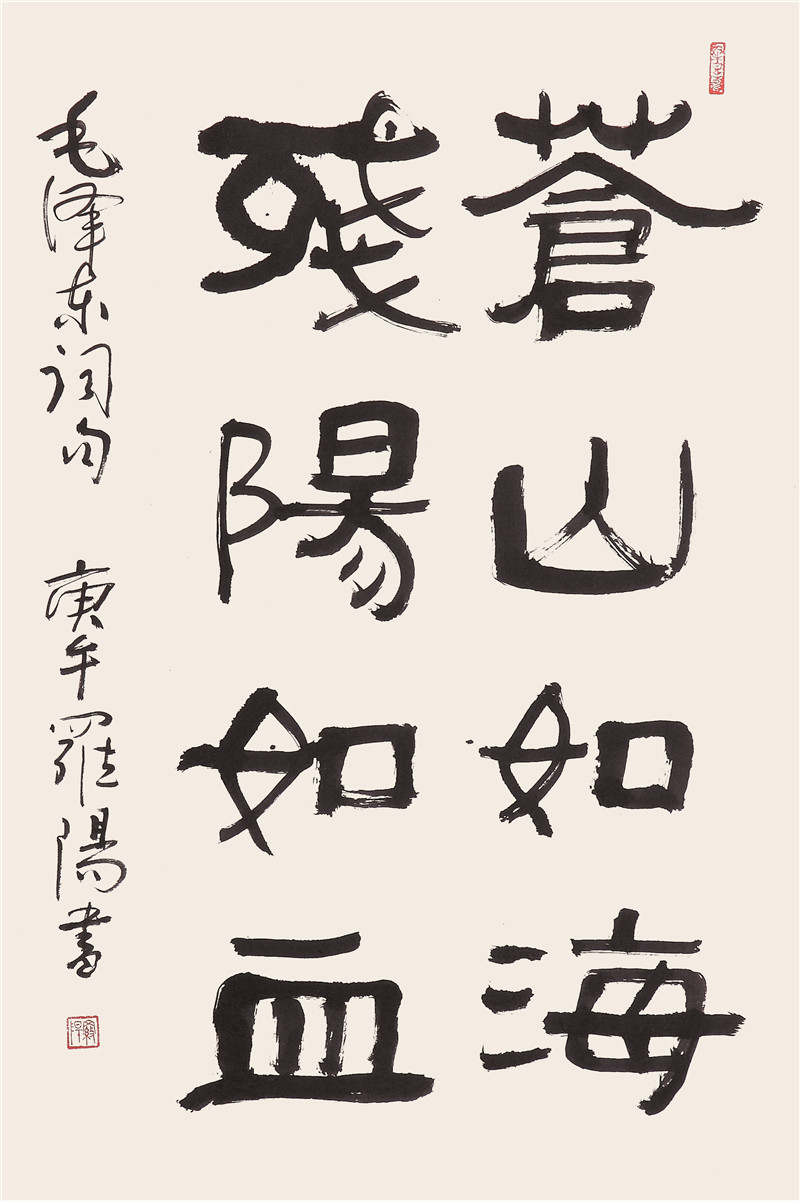 蒼山如海
殘陽如血
毛泽东词句 庚午羅陽書